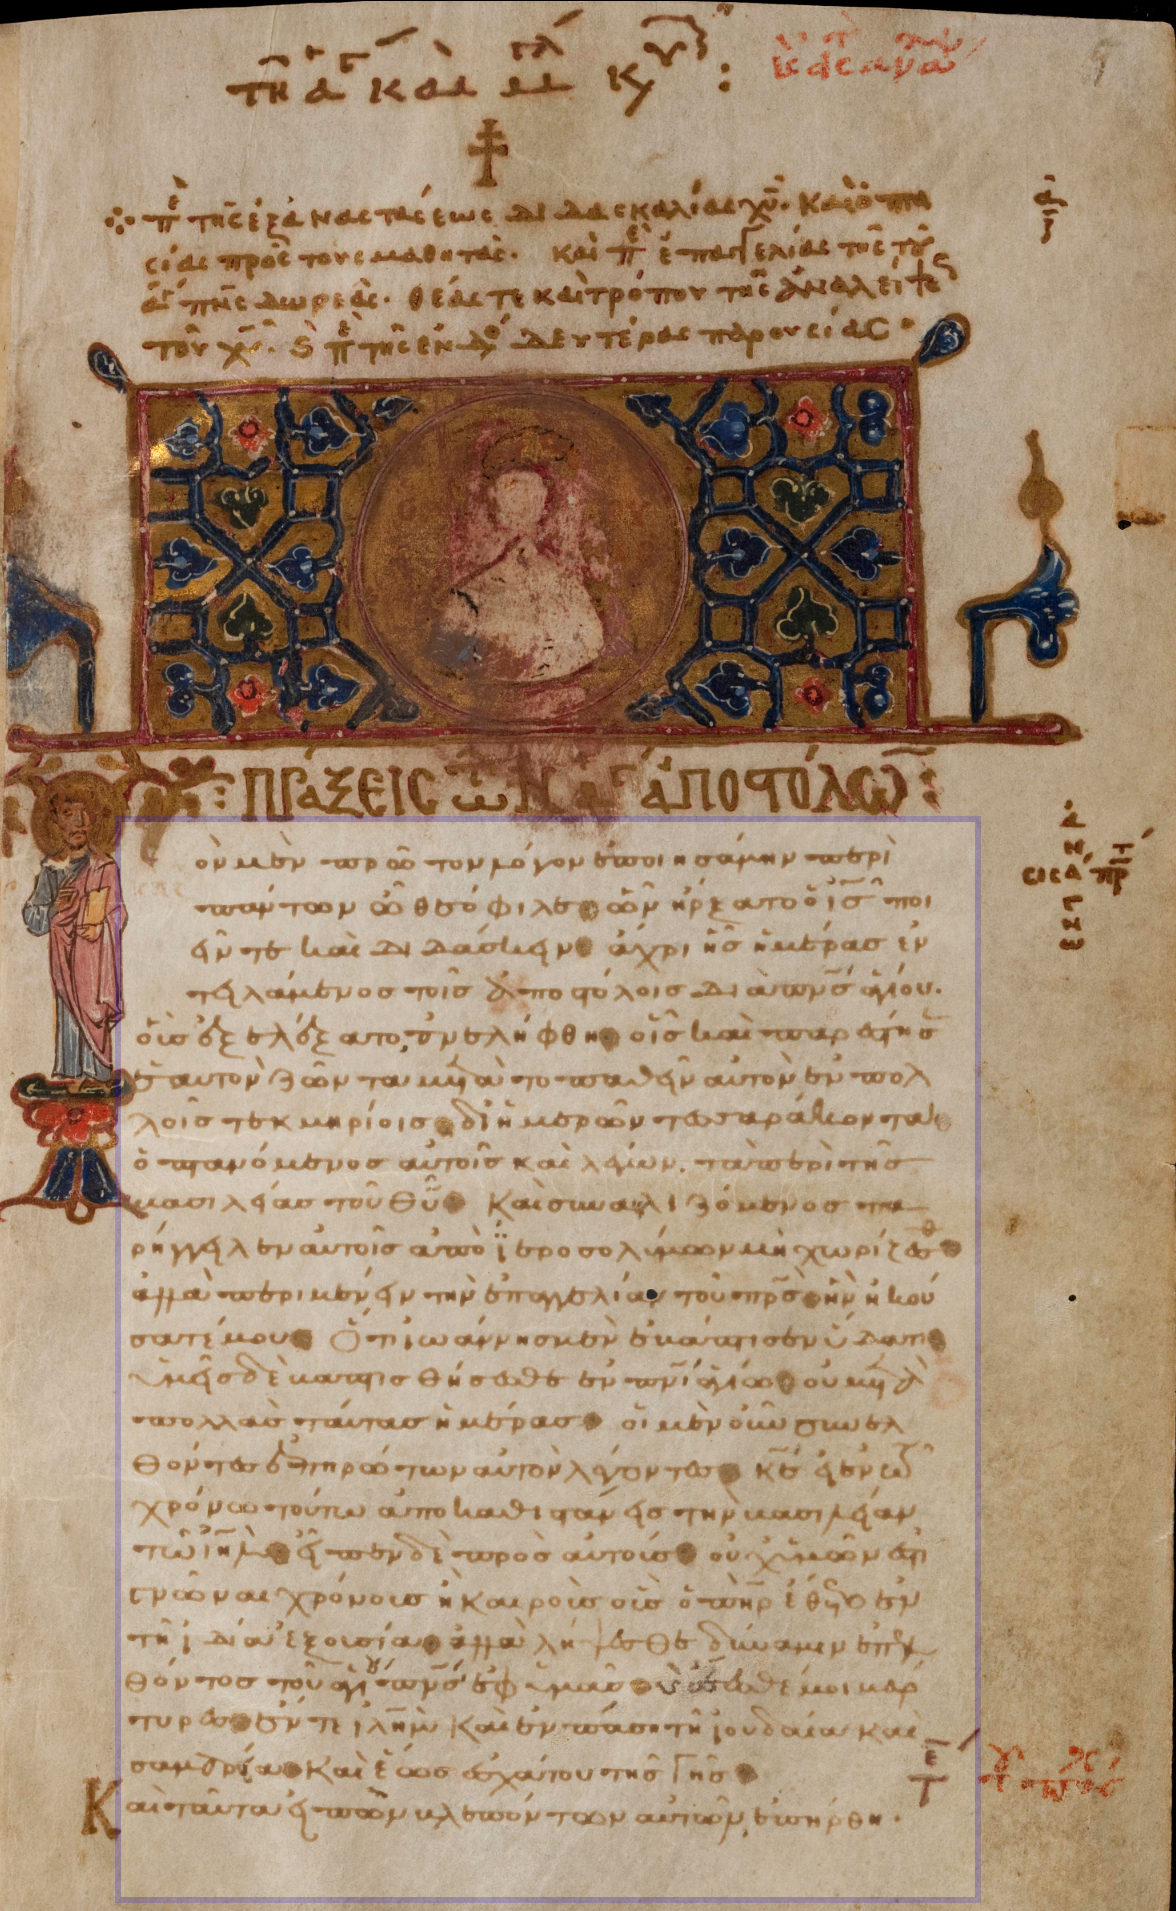 τῆ κυ
περὶ τῆς ἐξ ἀναστάσεως διδασκαλίας χυ. καὶ ὀπτα
σίας πρὸς τοὺς μαθητάς. καὶ περὶ ἐπαγγελίας τῆς τοῦ
δωρεᾶς. θέας τε καὶ τρόπου τῆς ἀναλείψεως
τοῦ χυ. καὶ περὶ τῆς ἐνδόξου δευτέρας παρουσίας.
πράξεις τῶν ἁγίων ἀποστόλων:
ὸν μὲν πρῶτον λόγον ἐποιησάμην περὶ
πάντων ὦ θεόφιλε. ὧν ἤρξατο ὁ ις ποι
εῖν τε καὶ διδάσκειν. ἄχρι ἧς ἡμέρας ἐν
τειλάμενος τοῖς ἀποστόλοις διὰ πνς ἁγίου.
οὓς ἐξελέξατο, ἀνελήφθη. οἷς καὶ παρέστησεν
ἑαυτὸν ζῶντα μετὰ τὸ παθεῖν αὐτὸν ἐν πολ
λοῖς τεκμηρίοις. δι ἡμερῶν τεσσαράκοντα.
ὀπτανόμενος αὐτοῖς καὶ λέγων, τὰ περὶ τῆς
βασιλείας τοῦ θυ. Καὶ συναλιζόμενος πα
ρήγγειλεν αὐτοῖς ἀπὸ ἱεροσολύμων μὴ χωρίζεσθαι.
ἀλλὰ περιμένειν τὴν ἐπαγγελίαν τοῦ πρς. ἣν ἠκού
σατέ μου. Ὅτι ἰωάννης μὲν ἐβάπτισεν ὕδατι.
ὑμεῖς δὲ βαπτισθήσεσθε ἐν πνι ἁγίω. οὐ μετὰ
πολλὰς ταύτας ἡμέρας. οἱ μὲν οὖν συνελ
θόντες ἐπηρώτων αὐτὸν λέγοντες. κε εἰ ἐν τῶ
χρόνω τούτω ἀποκαθιστάνεις τὴν βασιλείαν
τῶ ιηλ. εἶπεν δὲ πρὸς αὐτούς. οὐχ ὑμῶν ἐστι
γνῶναι χρόνους ἢ καιροὺς οὓς ὁ πηρ ἔθετο ἐν
τῆ ἰδία ἐξουσία. ἀλλὰ λήψεσθε δύναμιν ἐπελ
θόντος τοῦ ἁγίου πνς ἐφ ὑμᾶς. καὶ ἔσεσθέ μοι μάρ
τυρες. ἔν τε ιλημ καὶ ἐν πάση τῆ ἰουδαία καὶ
σαμαρεία. Καὶ ἕως ἐσχάτου τῆς γῆς.
Καὶ ταῦτα εἰπὼν βλεπόντων αὐτῶν, ἐπήρθη.